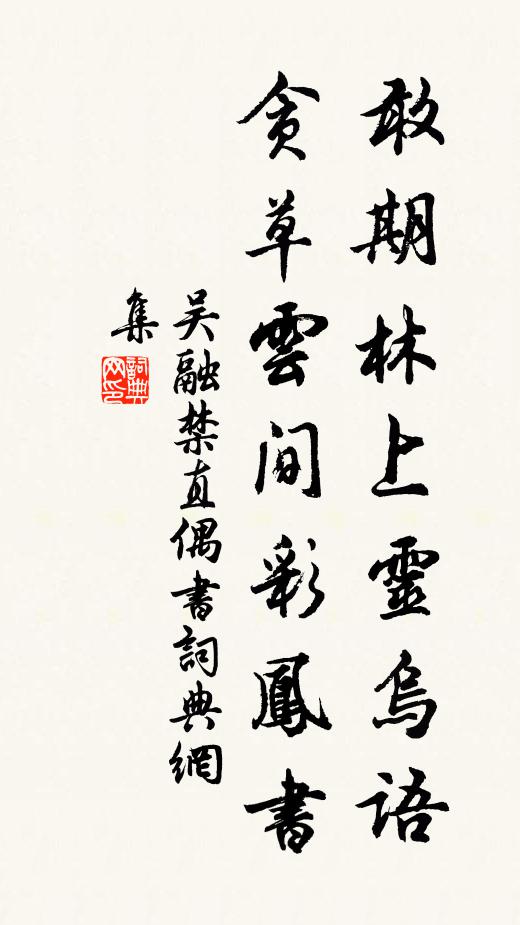 敢期林上靈烏語
貪草雲間彩鳳書
吴融禁直偶書詞典網
集
詞典网印